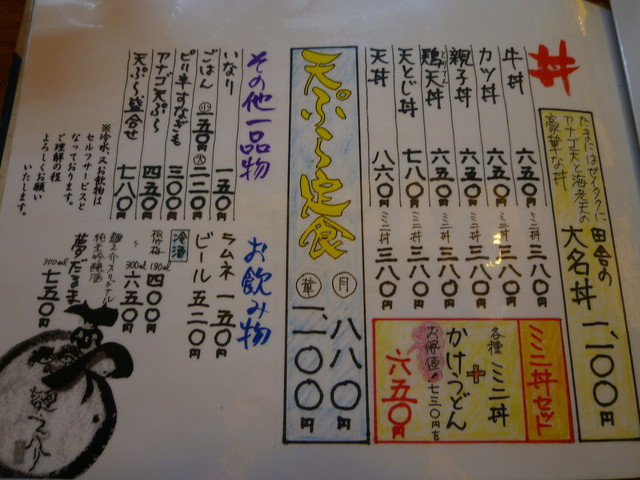 丼
たまにはゼイタクに
アナゴ天と海老天の
豪華な丼
田舎の
大名丼 一、一〇〇円
牛丼 六五〇円 ミニ丼 三八〇円
カツ丼 六五〇円 ミニ丼 三八〇円
親子丼 六五〇円 ミニ丼 三八〇円
鶏天丼 六五〇円 ミニ丼 三八〇円
天とじ丼 七八〇円 ミニ丼 三八〇円
天丼 八六〇円 ミニ丼 三八〇円
ミニ丼セット
各種 ミニ丼
+
かけうどん
お得値! 七三〇円を
六五〇円
天ぷら定食
月 八八〇円
華 一、一〇〇円
その他一品物
いなり 一五〇円
ごはん 小 一五〇円 大 二二〇円
ピリ辛すなぎも 三〇〇円
アナゴ天ぷら 四五〇円
天ぷら盛合せ 七八〇円
※冷水、又お飲物は
セルフサービスと
なっております。
ご理解の程
よろしくお願い
いたします。
お飲み物
ラムネ 一五〇円
ビール 五二〇円
冷酒
180ml 四〇〇円
〃 300ml 六五〇円
純米吟醸酒
夢たるま 300ml 七五〇円
夢